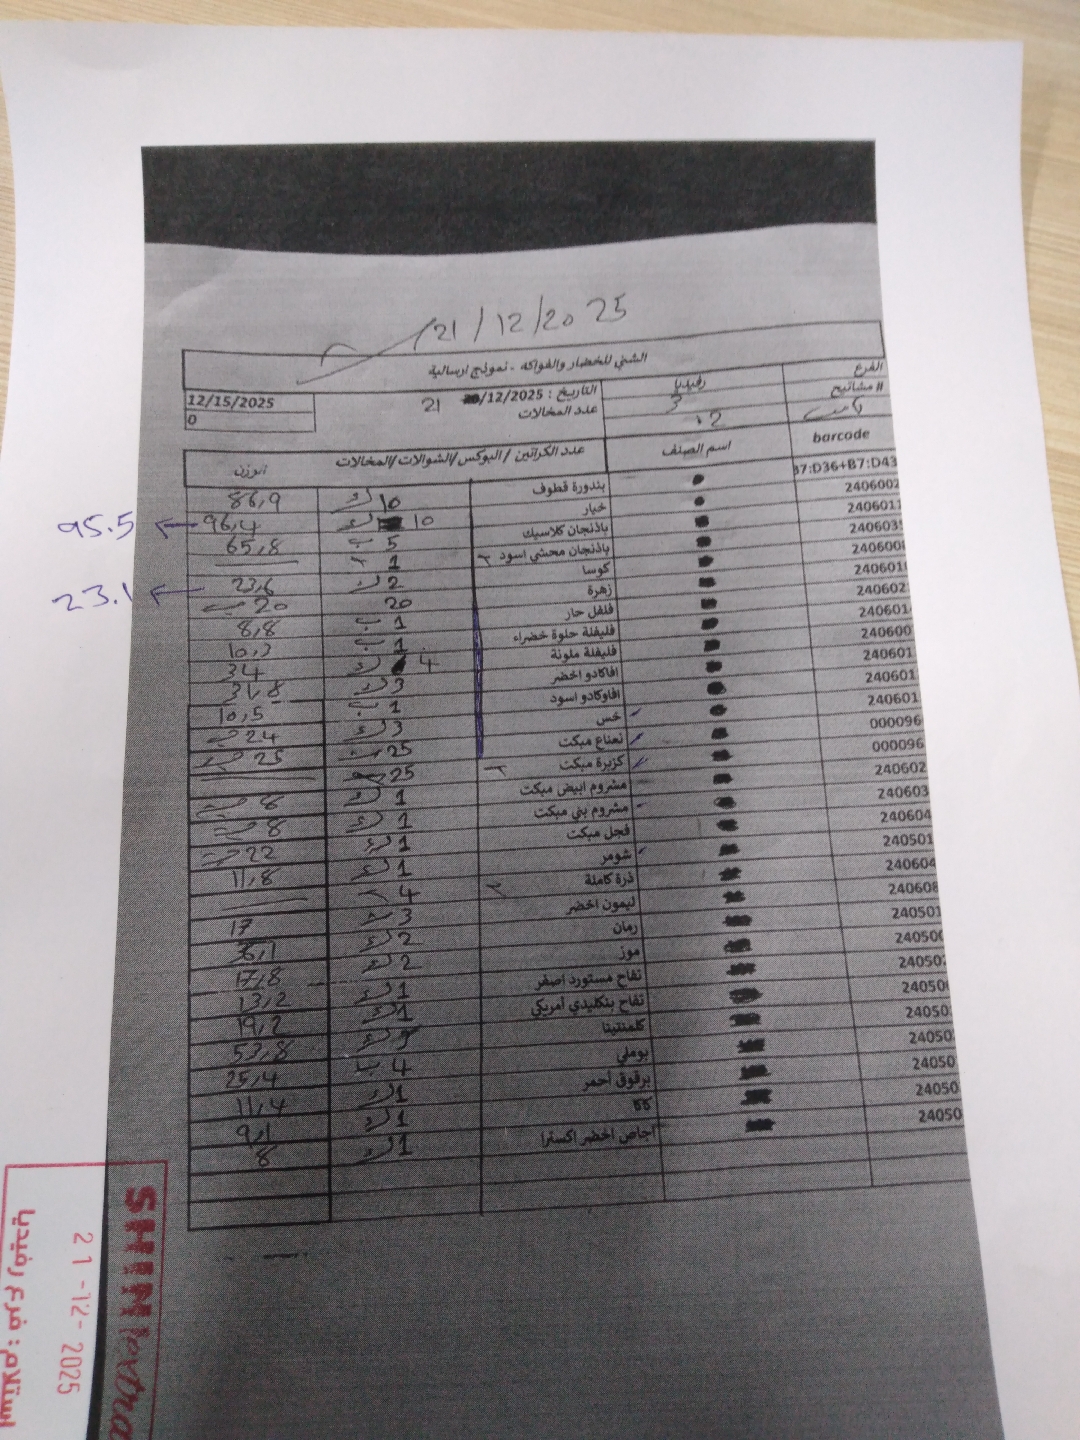 21/12/2025
الشني للخضار والفواكه - نموذج ارسالية
الفرع رفيديا التاريخ : 21 /12/2025 12/15/2025
# مشاتيح 3 عدد المخالات 0
barcode اسم الصنف عدد الكراتين / البوكس/الشوالات/المخالات الوزن
37:D36+B7:D43
240600 بندورة قطوف 10 86,9
240601 خيار 10 96,4 ← 95.5
240603 باذنجان كلاسيك 5 ب 65,8
240600 باذنجان محشي اسود 1
240601 كوسا 2 23,6 ← 23.1
240602 زهرة 20 20
240601 فلفل حار 1 ب 8,8
240600 فليفلة حلوة خضراء 1 ب 10,3
240601 فليفلة ملونة 4 34
240601 افاكادو اخضر 3 31,8
240601 افاوكادو اسود 1 ب 10,5
000096 خس 3 24
000096 نعناع مبكت 25 25
240602 كزبرة مبكت 25
240603 مشروم ابيض مبكت 1 8
240604 مشروم بني مبكت 1 8
240501 فجل مبكت 1 22
240604 شومر 1 11,8
240608 ذرة كاملة 4
240501 ليمون اخضر 3 17
240500 رمان 2 36,1
240502 موز 2 17,8
240500 تفاح مستورد اصفر 1 13,2
24050 تفاح بنكليدي أمريكي 1 19,2
24050 كلمنتينا 53,8
24050 بوملي 4 ب 25,4
24050 برقوق أحمر 1 11,4
24050 كاكا 1 9,1
اجاص اخضر اكسترا 1 8
SHINI extra
21-12-2025
استلام : فرع رفيديا